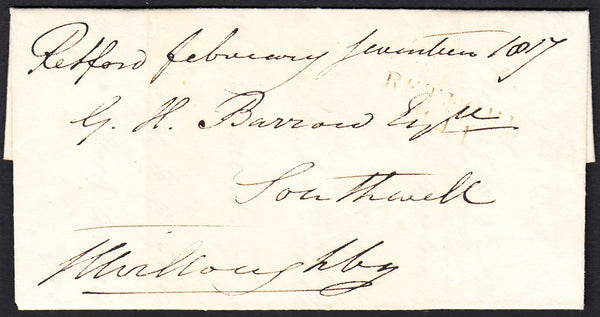 Retford february seventeen 1817
RETFORD
G. H. Barrow Esqre
Southwell
Willoughby